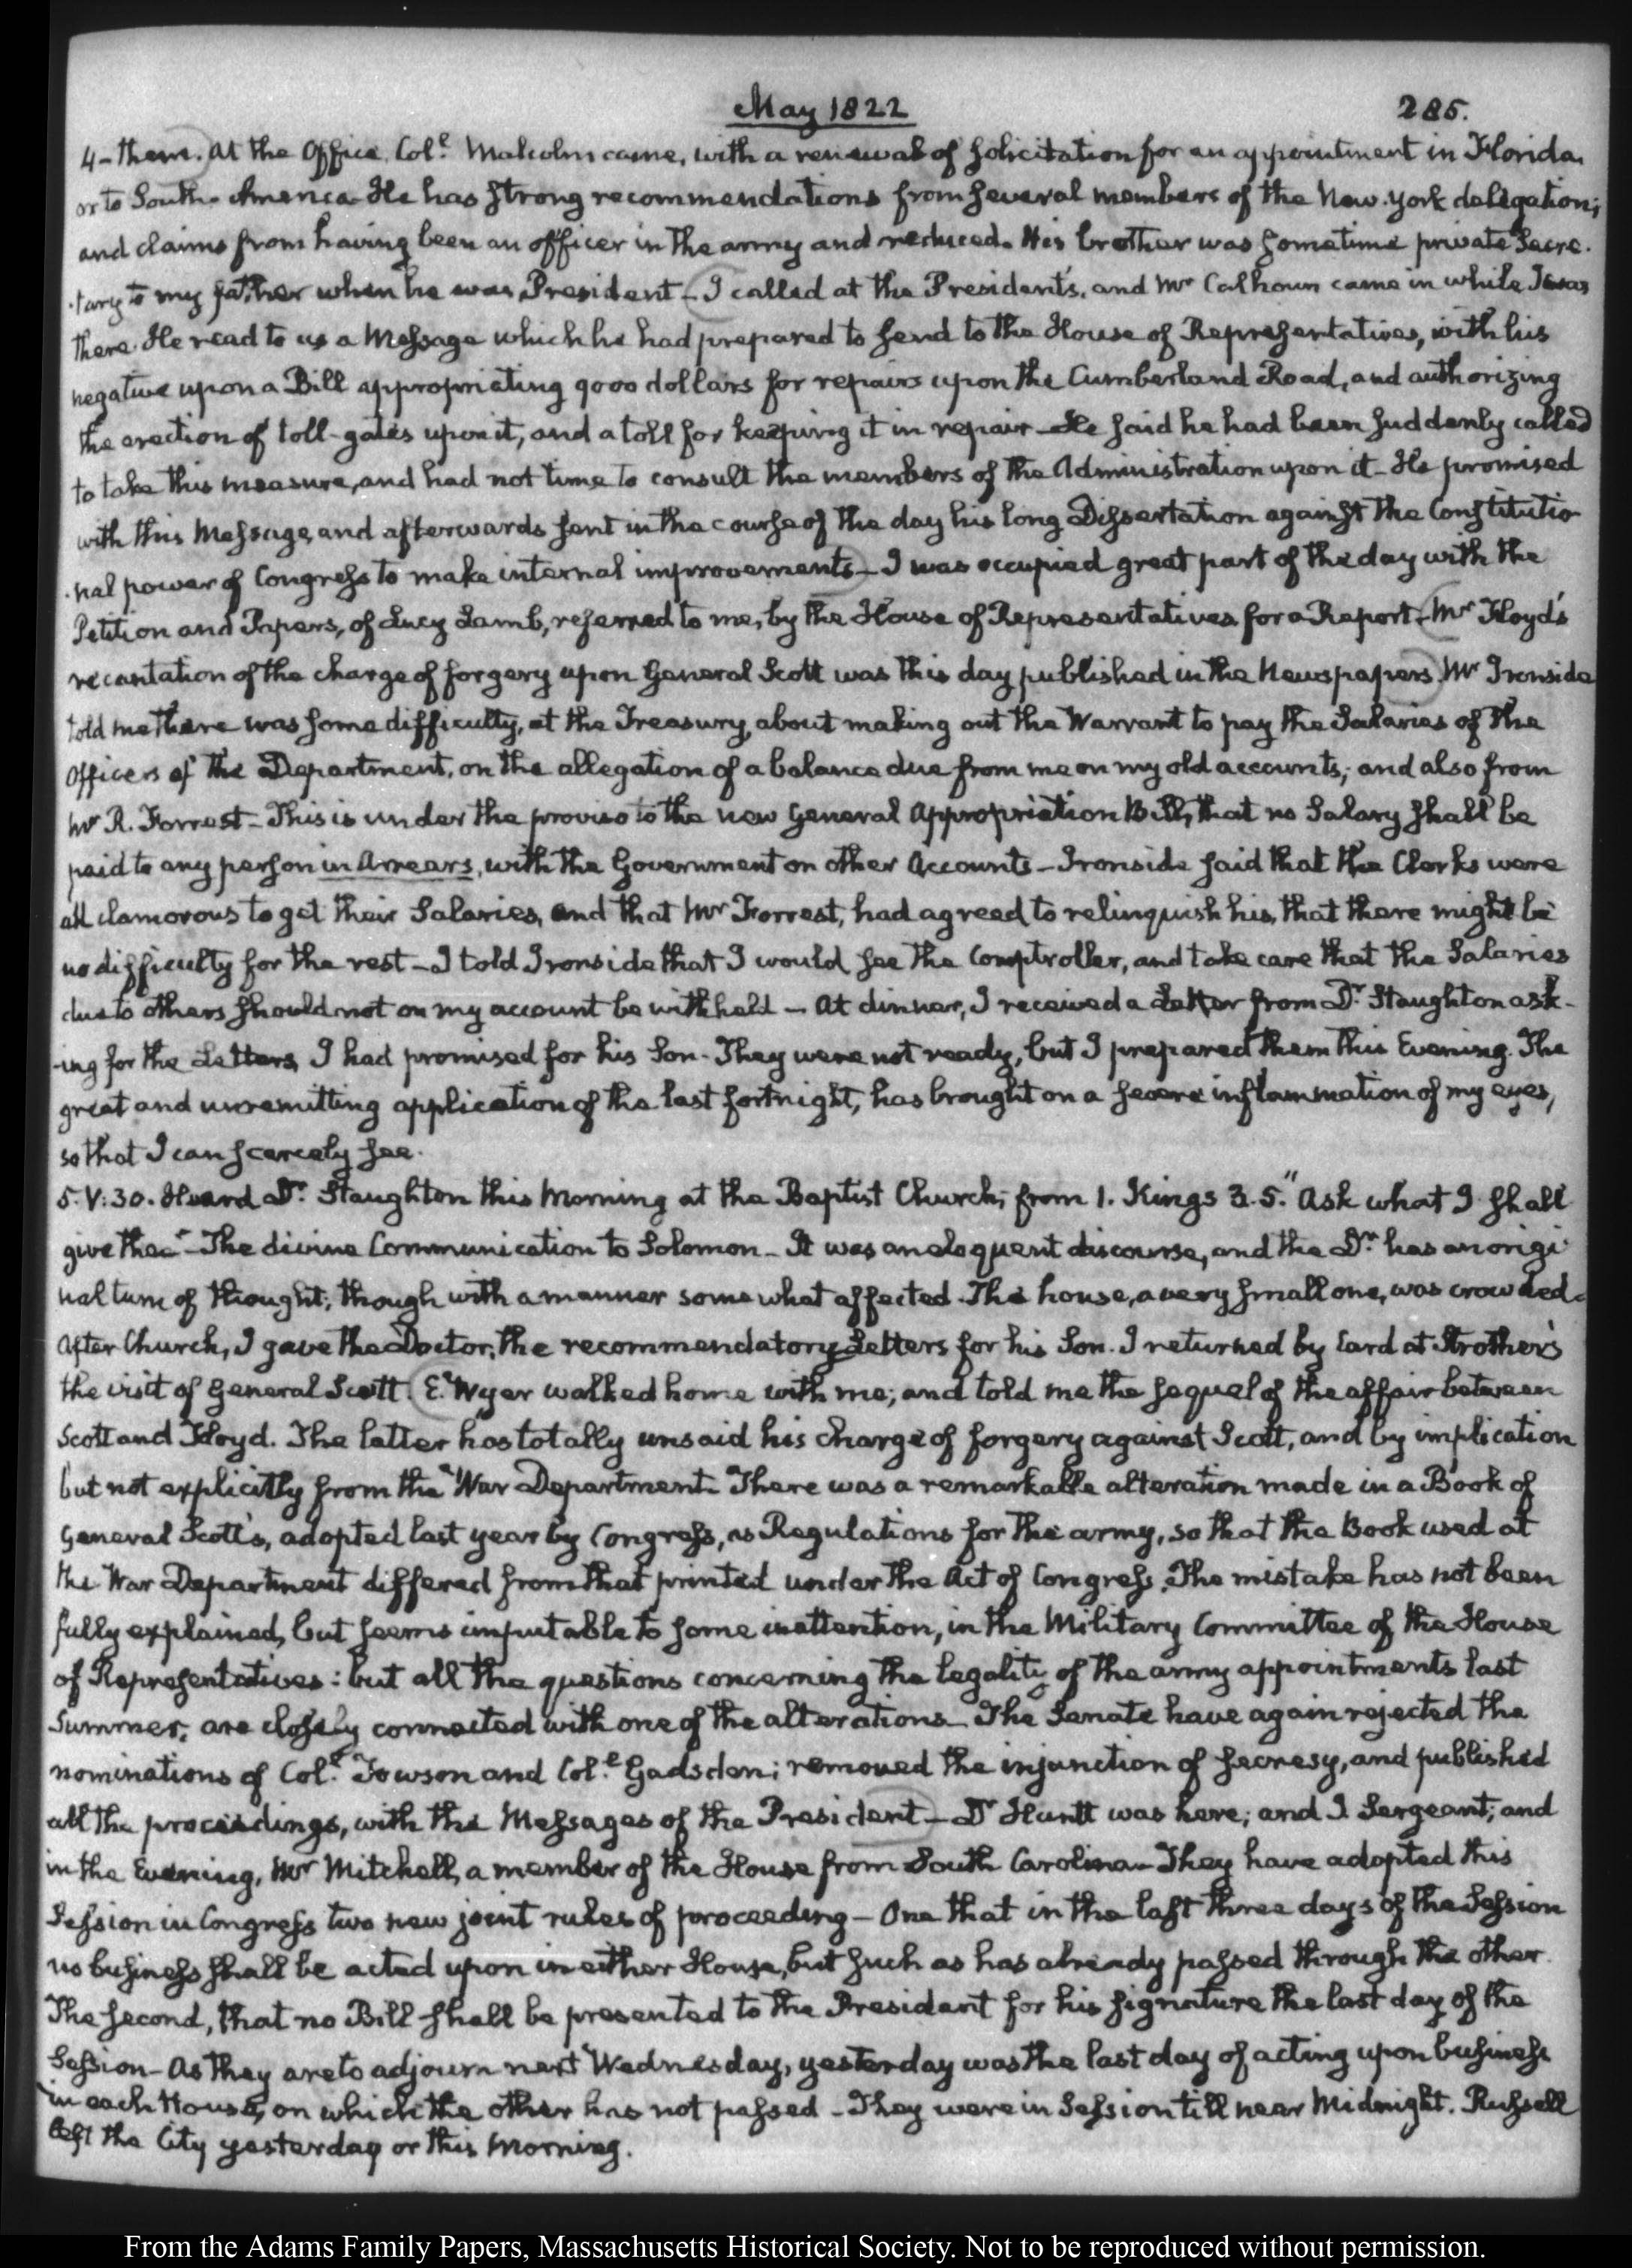 May 1822
285.
4- them. At the Office. Col.l Malcolm came, with a renewal of solicitation for an appointment in Florida
or to South-America. He has strong recommendations from several members of the New-York delegation;
and claims from having been an officer in the army and reduced. His brother was sometime private Secre-
-tary to my father when he was President- I called at the President's, and Mr Calhoun came in while I was
there. He read to us a Message which he had prepared to send to the House of Representatives, with his
negative upon a Bill appropriating 9000 dollars for repairs upon the Cumberland Road, and authorizing
the erection of toll-gates upon it, and a toll for keeping it in repair- He said he had been suddenly called
to take this measure, and had not time to consult the members of the Administration upon it- He promised
with this Message, and afterwards sent in the course of the day his long Dissertation against the Constitutio-
-nal power of Congress to make internal improvements- I was occupied great part of the day with the
Petition and Papers, of Lucy Lamb, referred to me, by the House of Representatives for a Report- Mr Floyd's
recantation of the charge of forgery upon General Scott was this day published in the Newspapers. Mr Ironside
told me there was some difficulty, at the Treasury, about making out the Warrant to pay the Salaries of the
Officers of the Department, on the allegation of a balance due from me on my old accounts; and also from
Mr R. Forrest- This is under the proviso to the new General Appropriation Bill, that no Salary shall be
paid to any person in Arrears, with the Government on other Accounts- Ironside said that the Clerks were
all clamorous to get their Salaries, and that Mr Forrest, had agreed to relinquish his, that there might be
no difficulty for the rest- I told Ironside that I would see the Comptroller, and take care that the Salaries
due to others should not on my account be withheld- At dinner, I received a Letter from Dr Staughton ask-
-ing for the Letters, I had promised for his Son- They were not ready, but I prepared them this Evening. The
great and unremitting application of the last fortnight, has brought on a severe inflammation of my eyes,
so that I can scarcely see.
5. V:30. Heard Dr Staughton this Morning at the Baptist Church; from 1. Kings 3.5. "Ask what I shall
give thee"- The divine Communication to Solomon- It was an eloquent discourse, and the Dr has an origi-
nal turn of thought; though with a manner somewhat affected. The house, a very small one, was crowded.
After Church, I gave the Doctor, the recommendatory Letters for his Son. I returned by Card at Strother's
the visit of General Scott. E. Wyer walked home with me; and told me the sequel of the affair between
Scott and Floyd. The latter has totally unsaid his charge of forgery against Scott, and by implication
but not explicitly from the War Department. There was a remarkable alteration made in a Book of
General Scott's, adopted last year by Congress, as Regulations for the army, so that the Book used at
the War Department differed from that printed under the Act of Congress. The mistake has not been
fully explained, but seems imputable to some inattention, in the Military Committee of the House
of Representatives: but all the questions concerning the legality of the army appointments last
Summer, are closely connected with one of the alterations- The Senate have again rejected the
nominations of Col.l Towson and Col.l Gadsden; removed the injunction of secresy, and published
all the proceedings, with the Messages of the President- Dr Huntt was here; and J Sergeant; and
in the Evening, Mr Mitchell, a member of the House from South Carolina- They have adopted this
Session in Congress two new joint rules of proceeding- One that in the last three days of the Session
no business shall be acted upon in either House, but such as has already passed through the other.
The second, that no Bill shall be presented to the President for his signature the last day of the
Session- As they are to adjourn next Wednesday, yesterday was the last day of acting upon business
in each House, on which the other has not passed- They were in Session till near Midnight. Russell
left the City yesterday or this Morning.
From the Adams Family Papers, Massachusetts Historical Society. Not to be reproduced without permission.